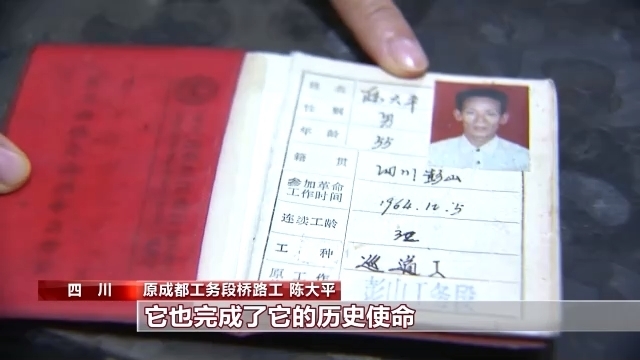 姓名 陈大平
性别 男
年龄 55
籍贯 四川彭山
参加革命
工作时间 1964.12.5
连续工龄
工种 巡道工
原工作 彭山工务段
四川 原成都工务段桥路工 陈大平
它也完成了它的历史使命